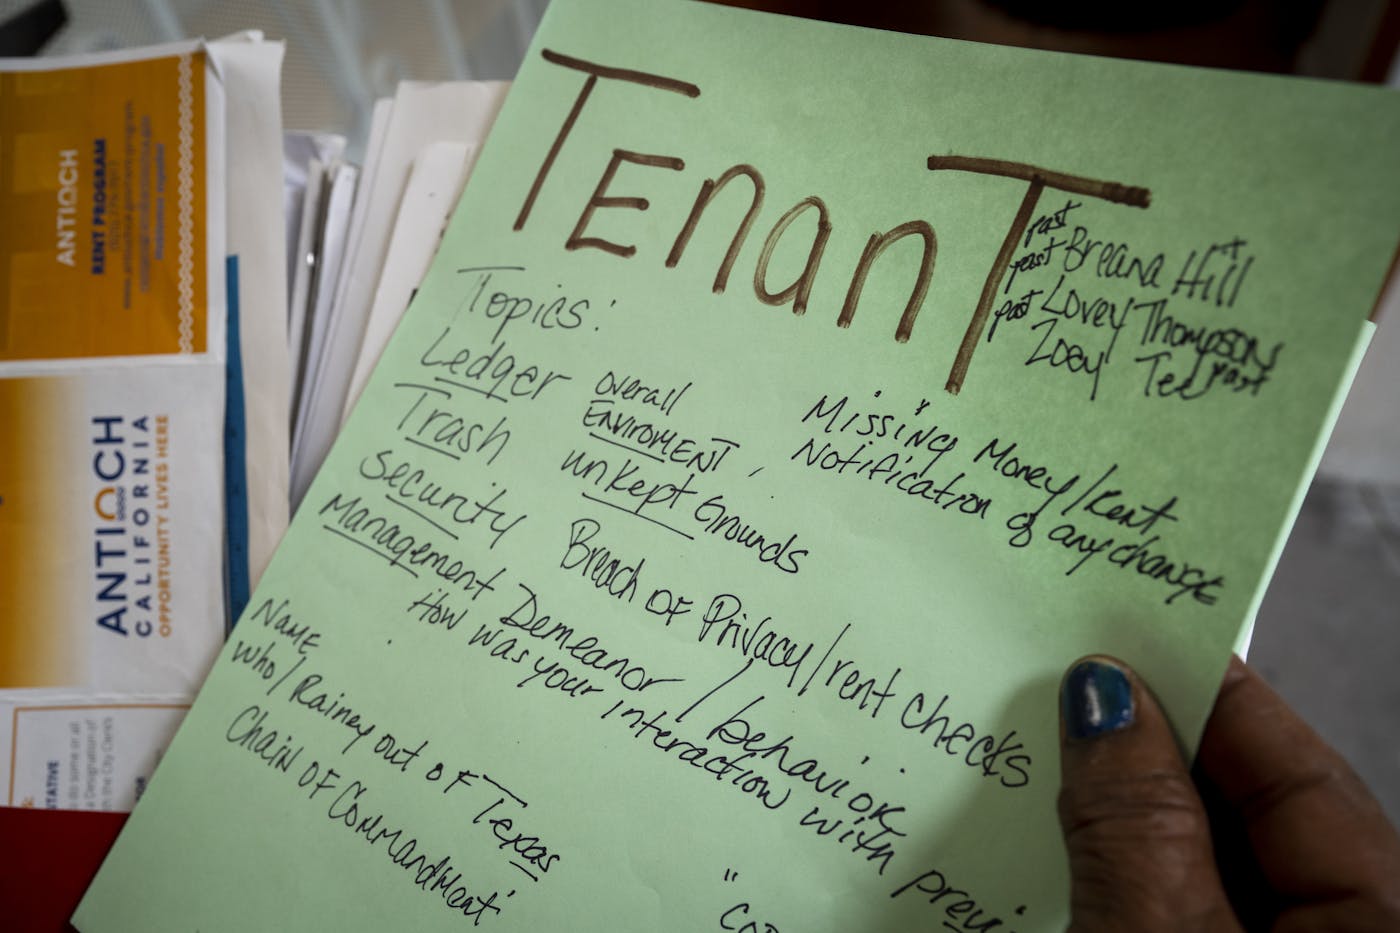 TENANT
past
past Breana Hill
past Lovey Thompson
Zoey Tee past
Topics:
Ledger
Missing Money/Rent
Notification of any change
Trash
overall
ENVIROMENT,
unKept Grounds
Security
Breach OF Privacy/rent checks
Management Demeanor/behavior
How was your interaction with previ
NAME
who/Rainey out OF Texas
Chain OF CommandMeat
"
ANTIOCH
RENT PROGRAM
ANTIOCH
CALIFORNIA
OPPORTUNITY LIVES HERE
TATIVE
to some or all
a Designation of
h the City Clerk's